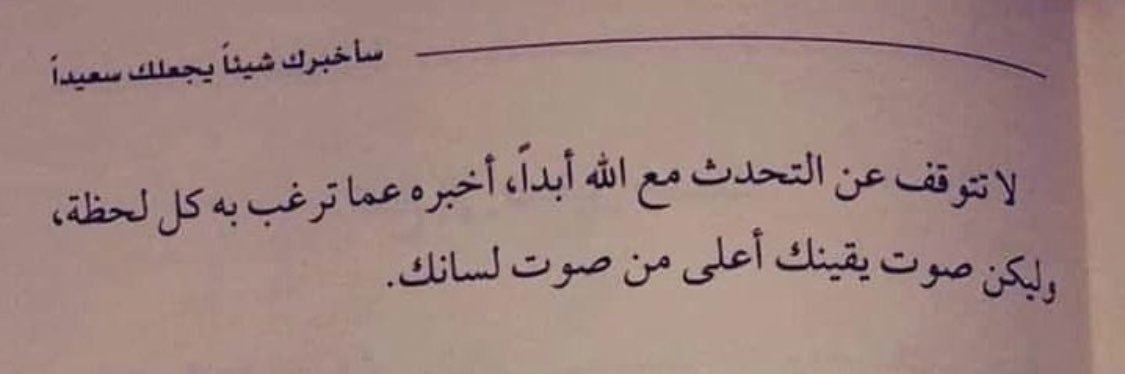 سأخبرك شيئاً يجعلك سعيداً
لا تتوقف عن التحدث مع الله أبداً، أخبره عما ترغب به كل لحظة،
وليكن صوت يقينك أعلى من صوت لسانك.